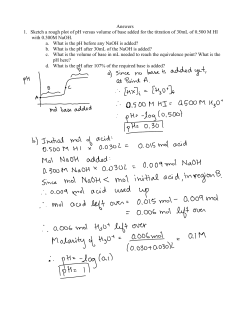 Answers
1. Sketch a rough plot of pH versus volume of base added for the titration of 30mL of 0.500 M HI
with 0.300M NaOH.
a. What is the pH before any NaOH is added?
b. What is the pH after 30mL of the NaOH is added?
c. What is the volume of base in mL needed to reach the equivalence point? What is the
pH here?
d. What is the pH after 107% of the required base is added?
pH
A
B
C
a) Since no base is added yet,
at Point A.
∴ [HX]ᵢ = [H₃O⁺]ᵢ
∴ 0.500 M HI = 0.500 M H₃O⁺
pH = -log(0.500)
pH = 0.30
b) Initial mol of acid:
0.500 M HI × 0.030 L = 0.015 mol acid
Mol NaOH added:
0.300M NaOH × 0.030L = 0.009 mol NaOH
Since mol NaOH < mol initial acid, in region B,
∴ 0.009 mol acid used up
∴ mol acid left over = 0.015 mol - 0.009 mol
= 0.006 mol left over
∴ 0.006 mol H₃O⁺ left over
Molarity of H₃O⁺ = 0.006 mol / (0.030+0.030)L = 0.1M
∴ pH = -log(0.1)
pH = 1